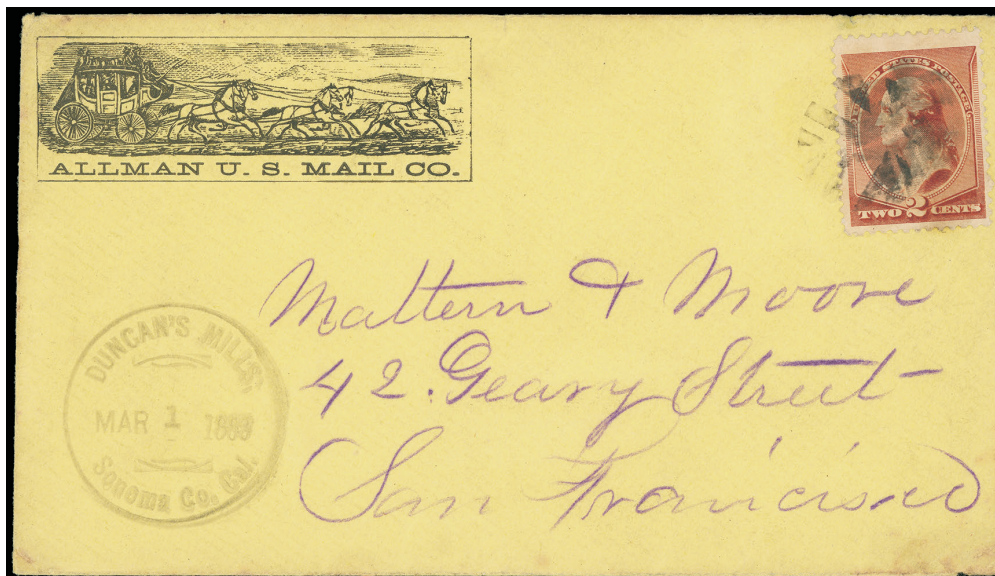 ALLMAN U. S. MAIL CO.
UNITED STATES POSTAGE
TWO 2 CENTS
Mattern & Moore
42. Geary Street
San Francisco
DUNCAN'S MILLS,
MAR 1
Sonoma Co. Cal.